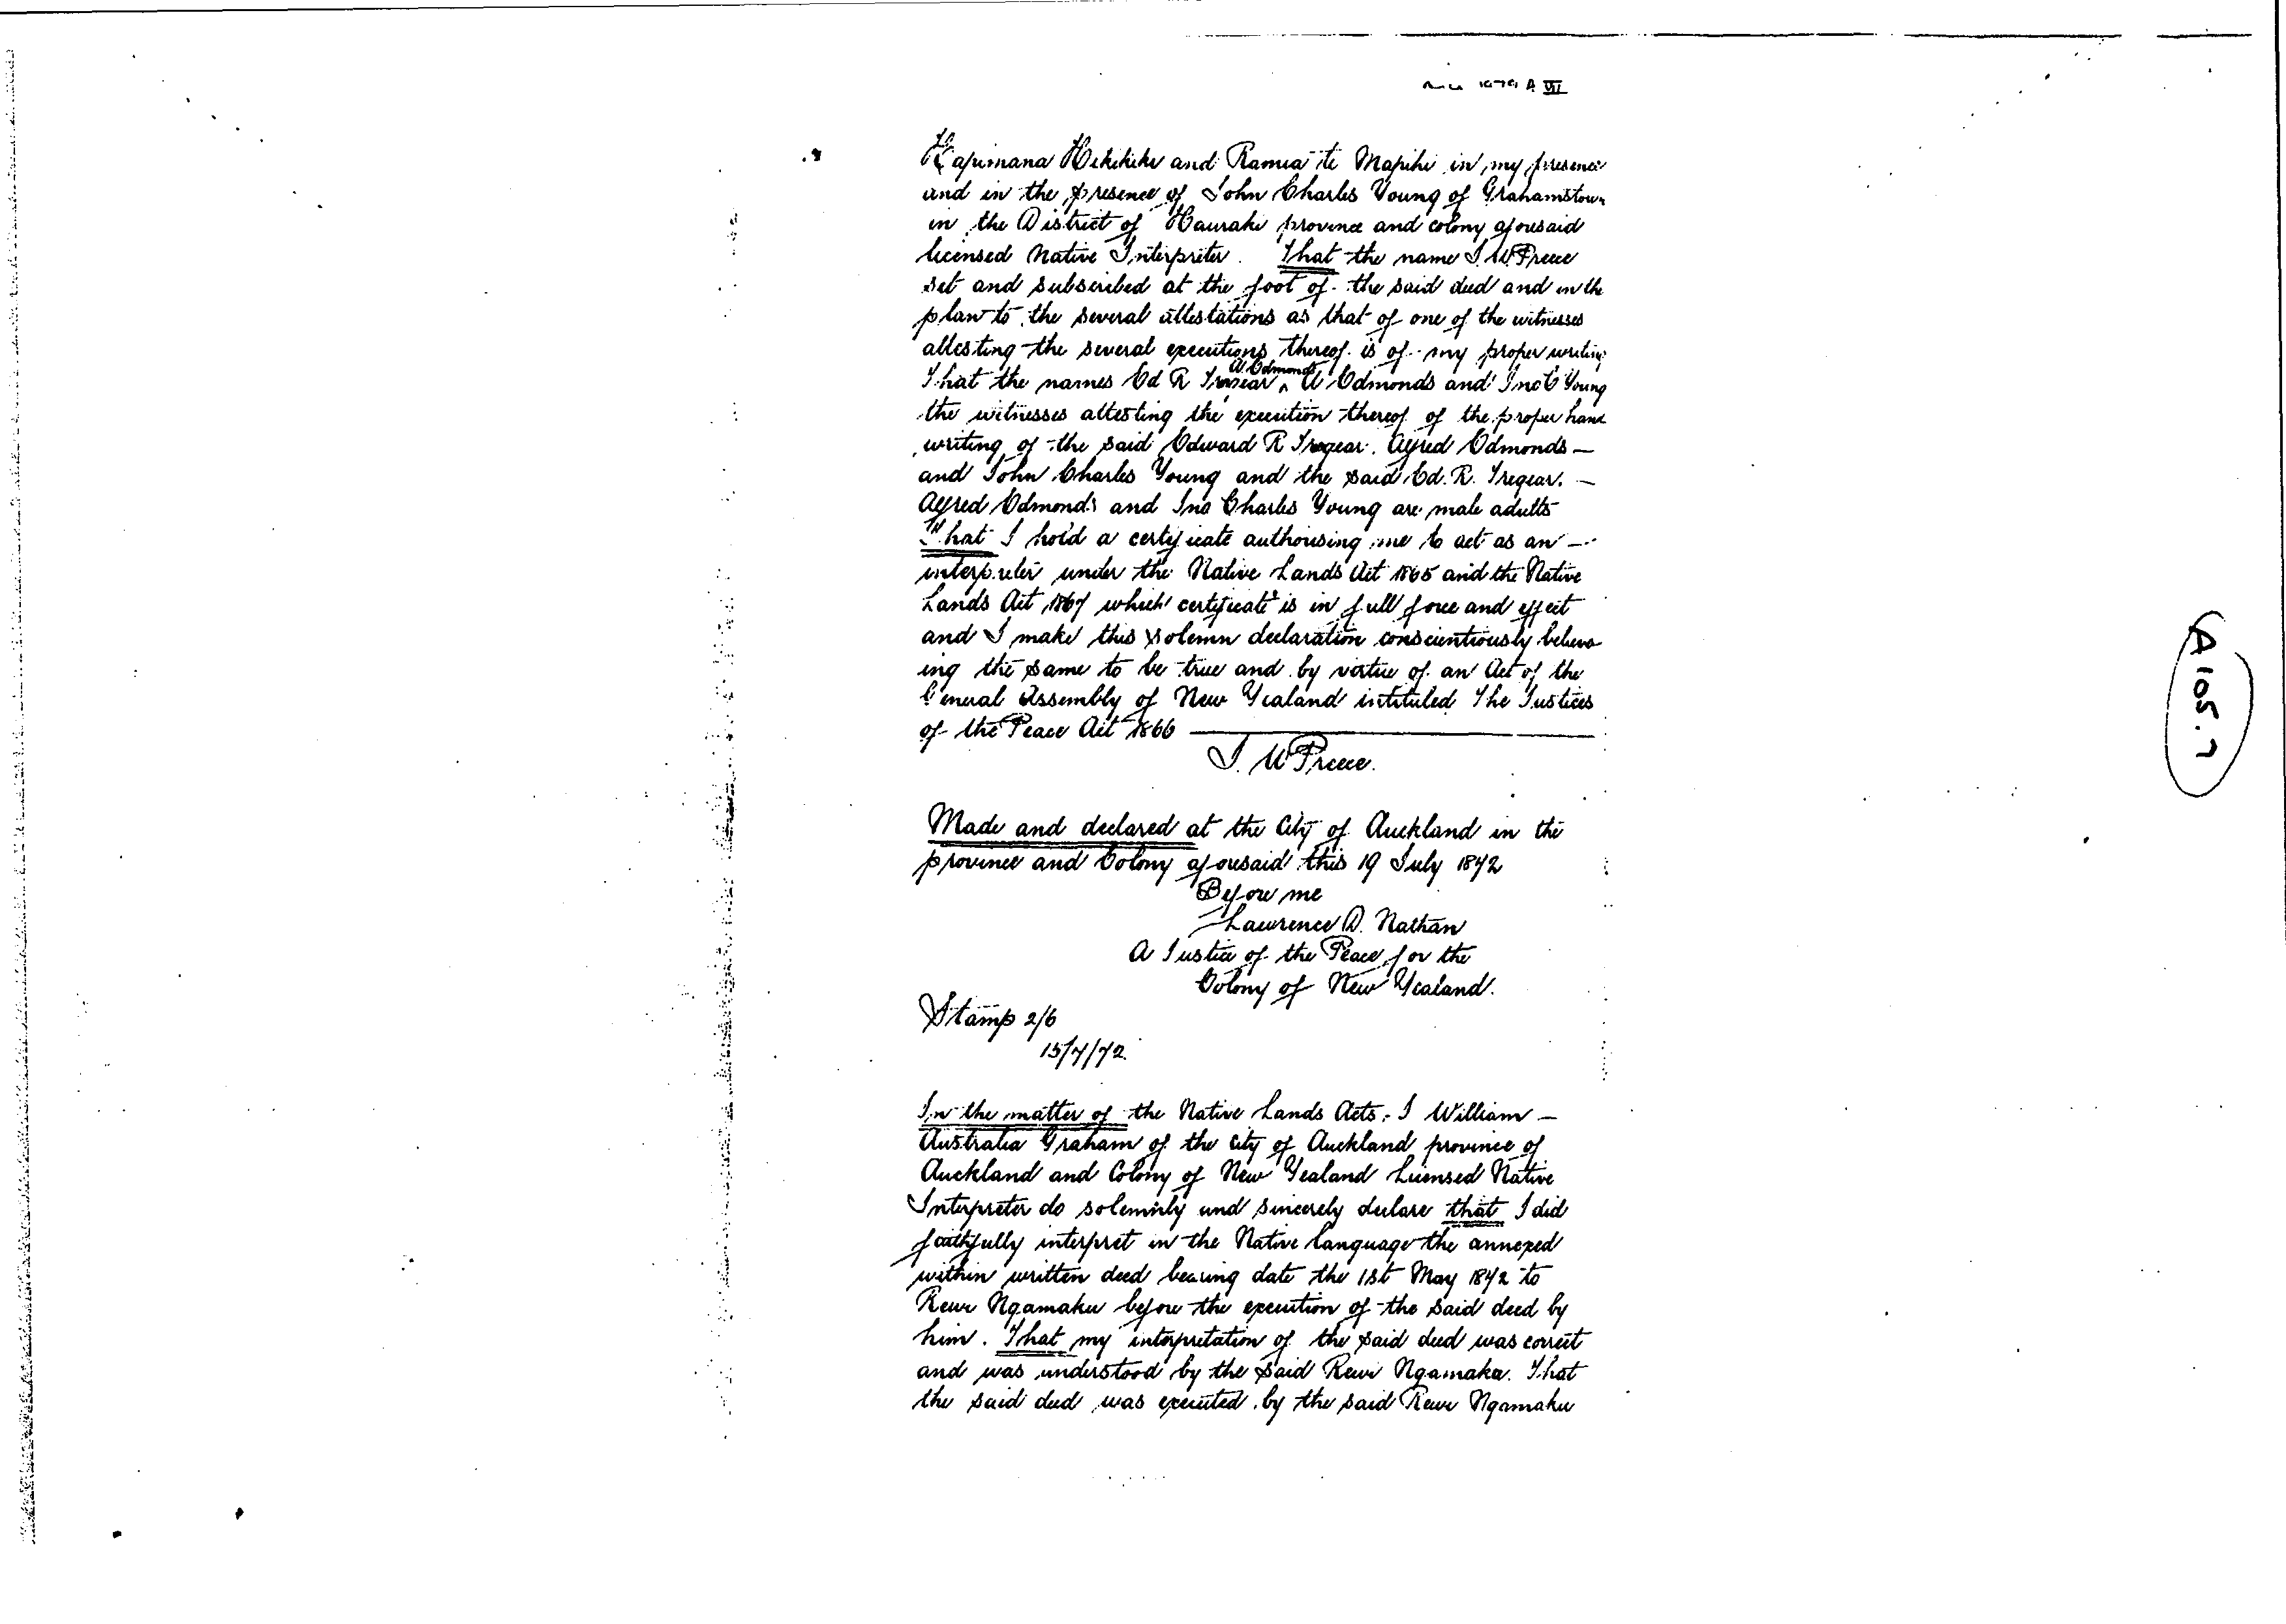 1879 A VII
Hapimana Hekiheke and Ramia te Mapihi in my presence
and in the presence of John Charles Young of Grahamstown
in the District of Hauraki province and colony aforesaid
licensed Native Interpreter. That the name J. W Preece
set and subscribed at the foot of the said deed and in the
plan to the several attestations as that of one of the witnesses
attesting the several executions thereof is of my proper writing
That the names Ed R Tregear A Edmonds A Edmonds and Jno C Young
the witnesses attesting the execution thereof of the proper hand
writing of the said Edward R Tregear. Alfred Edmonds —
and John Charles Young and the said Ed. R. Tregear. —
Alfred Edmonds and Jno Charles Young are male adults
That I hold a certificate authorising me to act as an —
interpreter under the Native Lands Act 1865 and the Native
Lands Act 1867 which certificate is in full force and effect
and I make this solemn declaration conscientiously believ
ing the same to be true and by virtue of an Act of the
General Assembly of New Zealand intituled The Justices
of the Peace Act 1866
J. W Preece.
Made and declared at the City of Auckland in the
province and Colony aforesaid this 19 July 1872
Before me
Lawrence D. Nathan
A Justice of the Peace for the
Colony of New Zealand.
Stamp 2/6
15/7/72
In the matter of the Native Lands Acts. I William —
Australia Graham of the City of Auckland province of
Auckland and Colony of New Zealand Licensed Native
Interpreter do solemnly and sincerely declare that I did
faithfully interpret in the Native language the annexed
within written deed bearing date the 1st May 1872 to
Rewi Ngamaku before the execution of the said deed by
him. That my interpretation of the said deed was correct
and was understood by the said Rewi Ngamaku. That
the said deed was executed by the said Rewi Ngamaku
A105.7